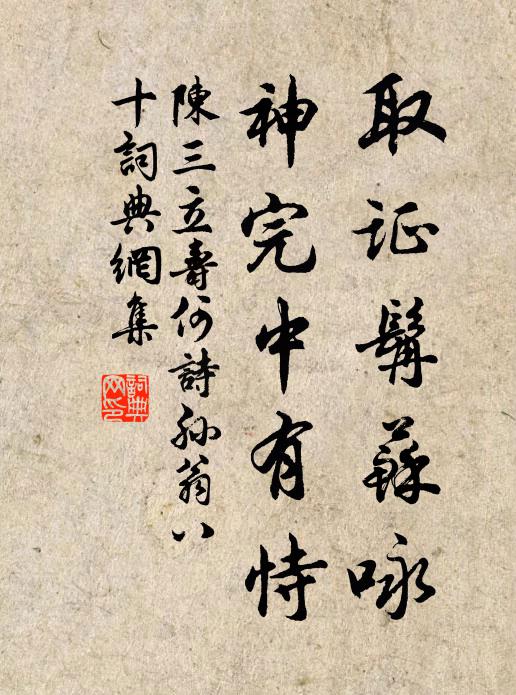 取证髯蘇咏
神完中有恃
陳三立壽何詩孫翁八
十詞典網集
詞典網印